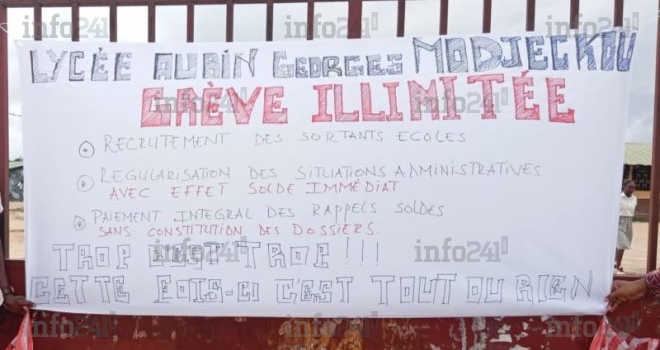 LYCÉE AUBIN GEORGES MODJECKOU
GRÈVE ILLIMITÉE
RECRUTEMENT DES SORTANTS ECOLES
REGULARISATION DES SITUATIONS ADMINISTRATIVES
AVEC EFFET SOLDE IMMÉDIAT
PAIEMENT INTEGRAL DES RAPPELS SOLDES
SANS CONSTITUTION DES DOSSIERS.
TROP C'EST TROP !!!
CETTE FOIS-CI C'EST TOUT OU RIEN
info241